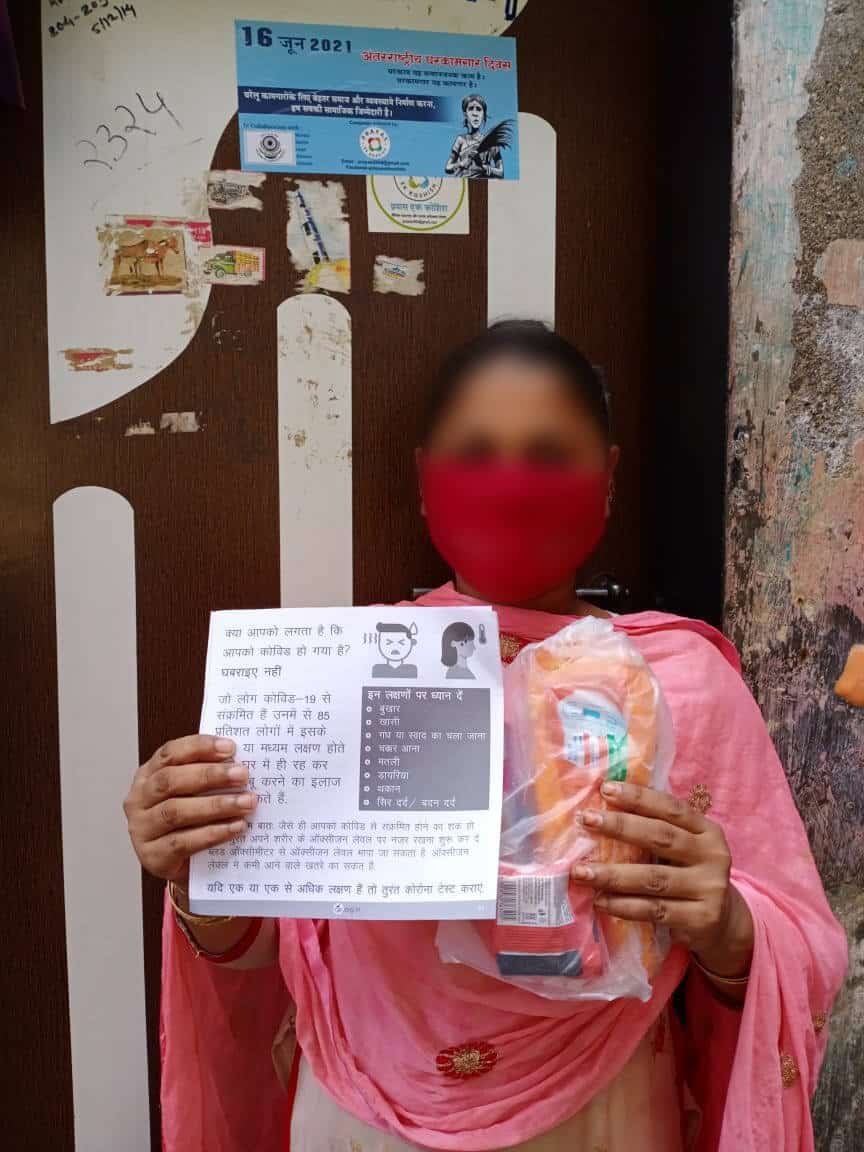 204-205
5/12/14
2324
16 जून 2021
अंतरराष्ट्रीय घरकामगार दिवस
घरकाम यह सन्मानजनक काम है।
घरकामगार यह कामगार है।
घरेलू कामगारोंके लिए बेहतर समाज और व्यवस्थायें निर्माण करना,
हम सबकी सामाजिक जिम्मेदारी है।
In Collaboration with:
PRAYAS
EK KOSHISH
प्रयास एक कोशिश
क्या आपको लगता है कि
आपको कोविड हो गया है?
घबराइए नहीं
जो लोग कोविड–19 से
संक्रमित हैं उनमें से 85
प्रतिशत लोगों में इसके
या मध्यम लक्षण होते
घर में ही रह कर
करने का इलाज
इन लक्षणों पर ध्यान दें
बुखार
खांसी
गंध या स्वाद का चला जाना
चक्कर आना
मतली
डायरिया
थकान
सिर दर्द/ बदन दर्द
बातः जैसे ही आपको कोविड से संक्रमित होने का शक हो
तुरंत अपने शरीर के ऑक्सीजन लेवल पर नजर रखना शुरू कर दें
ऑक्सीमीटर से ऑक्सीजन लेवल मापा जा सकता है ऑक्सीजन
लेवल में कमी आने वाले खतरे का संकेत है.
यदि एक या एक से अधिक लक्षण हैं तो तुरंत कोरोना टेस्ट कराएं